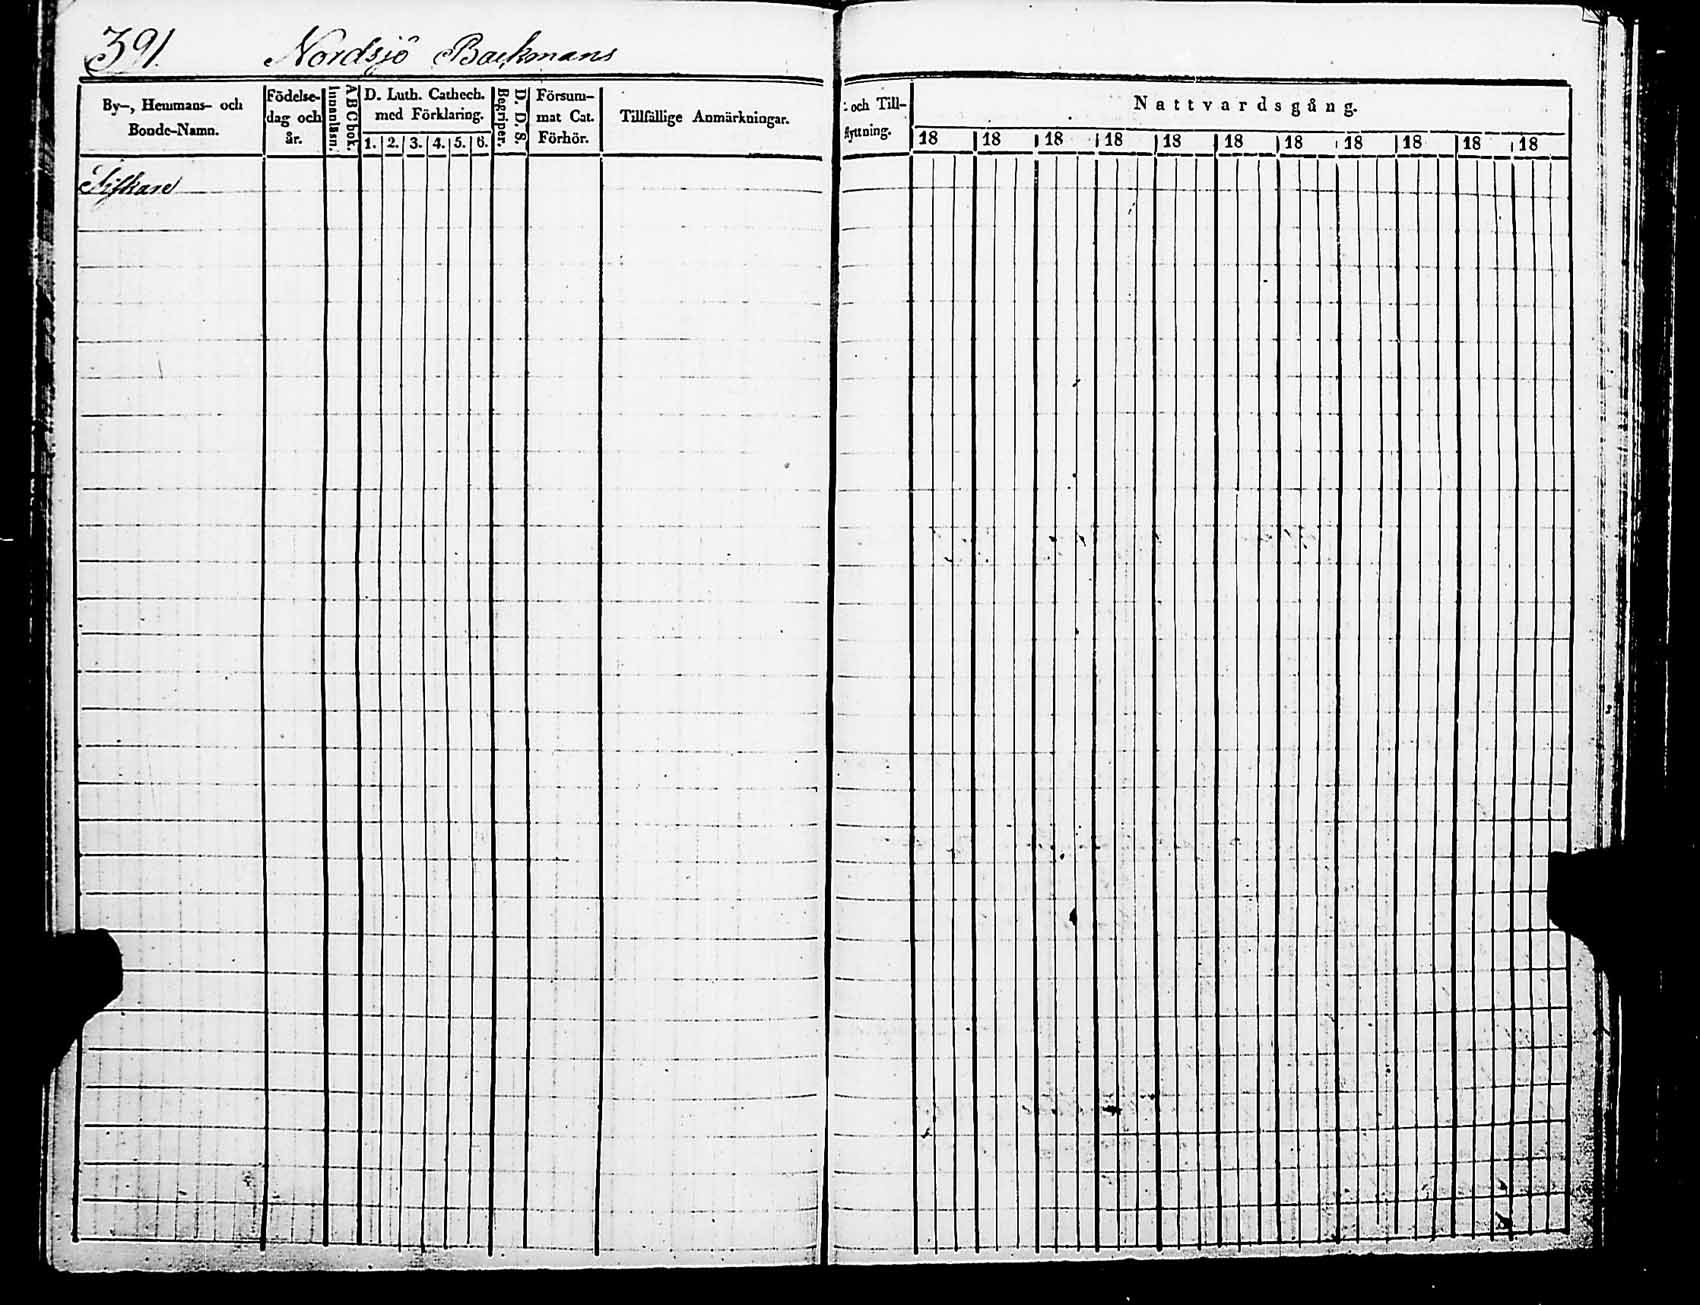 391. Nordsjö Backmans
By-, Hemmans- och
Bonde-Namn.
Födelse-
dag och
år.
Innanläsn.
A B C bok.
D. Luth. Cathech.
med Förklaring.
1. 2. 3. 4. 5. 6.
D. D. S.
Begriper.
Försum-
mat Cat.
Förhör.
Tillfällige Anmärkningar.
- och Till-
flyttning.
Nattvardsgång.
18 18 18 18 18 18 18 18 18 18 18